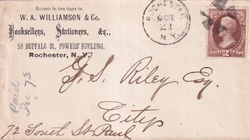 Return in ten days to
W. A. WILLIAMSON & Co.
Booksellers, Stationers, &c.,
58 BUFFALO ST., POWERS' BUILDING,
Rochester, N. Y.
ROCHESTER
OCT
N.Y.
G. S. Riley Esq.
City
72 South St Paul